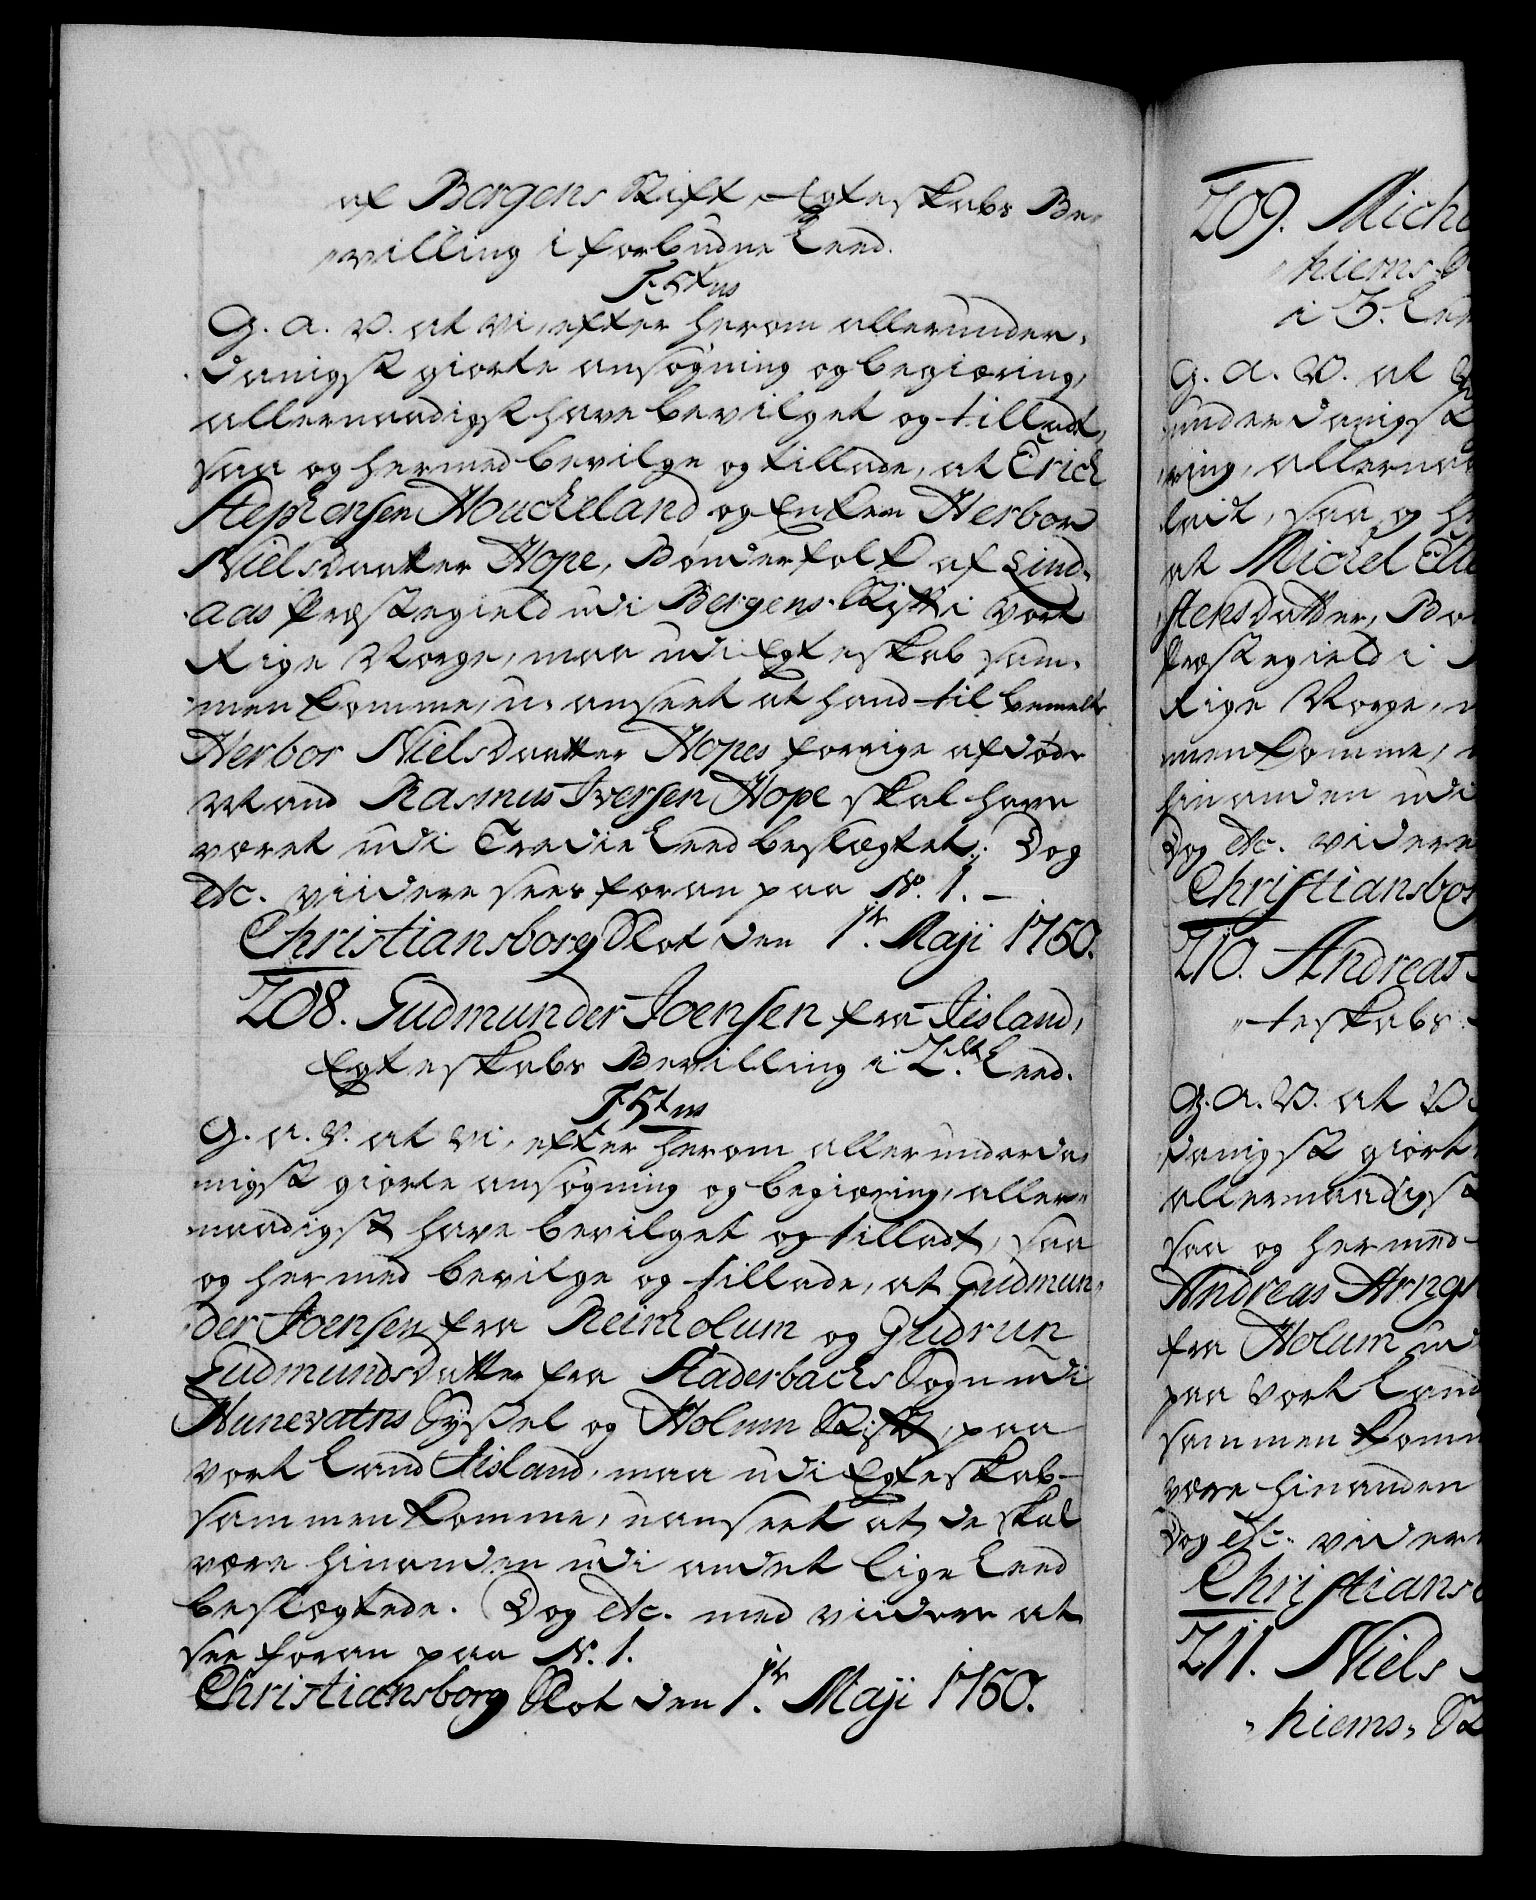 af Bergens Stift, Egteskabs Be-
villing i forbudne Leed.
F 5tus
G. A. V. at Vi, efter herom allerunder-
danigst giorte ansøgning og begiæring,
allernaadigst have bevilget og tilladt,
saa og hermed bevilge og tillade, at Erich
Stephensen Houckeland og Enken Herbor
Nielsdaatter Hope, Bønderfolk af Lind-
aas Præstegield udi Bergens Stift i Vort
Rige Norge, maa udi Egteskab sam-
menkomme, u-anseet at hand til bemelte
Herbor Nielsdaatter Hopes forrige afdøde
Mand Rasmus Iversen Hope skal have
været udi Tredie Leed beslægtet. Dog
etc. viidere sees foran paa No. 1. –
Christiansborg Slot den 1te. Maji 1760.
208. Gudmunder Joensen fra Iisland,
Egteskabs Bevilling i 2det Leed.
F 5tus
G. A. V. at Vi, efter herom allerunderda-
nigst giorte ansøgning og begiæring, aller-
naadigst have bevilget og tilladt, saa
og hermed bevilge og tillade, at Gudmun-
der Joensen fra Reinholum og Gudrun
Gudmundsdatter fra Staderbachs Sogn udi
Hunevatns Syssel og Holum Stift, paa
vort Land Iisland, maa udi Egteskab
sammenkomme, uanseet at de skal
være hinanden udi andet lige Leed
beslægtede. Dog etc. med viidere at
see foran paa No. 1.
Christiansborg Slot den 1te. Maji 1760.
209. Mich
hiems
i 3. Lee
G. A. V. at
underdanigst
ring, allernaa
ladt, saa og he
at Michel
stensdatter, Bø
Præstegield i
Rige Norge, m
menkomme,
hinanden udi
Dog etc. videre
Christiansbor
210. Andreas
teskabs
G. A. V. at V
danigst giort
allernaadigst
saa og hermed
Andreas Arng
fra Holum ud
paa Vort Land
sammenkomm
være hinanden
Dog etc. videre
Christiansb
211. Niels
hiems, St